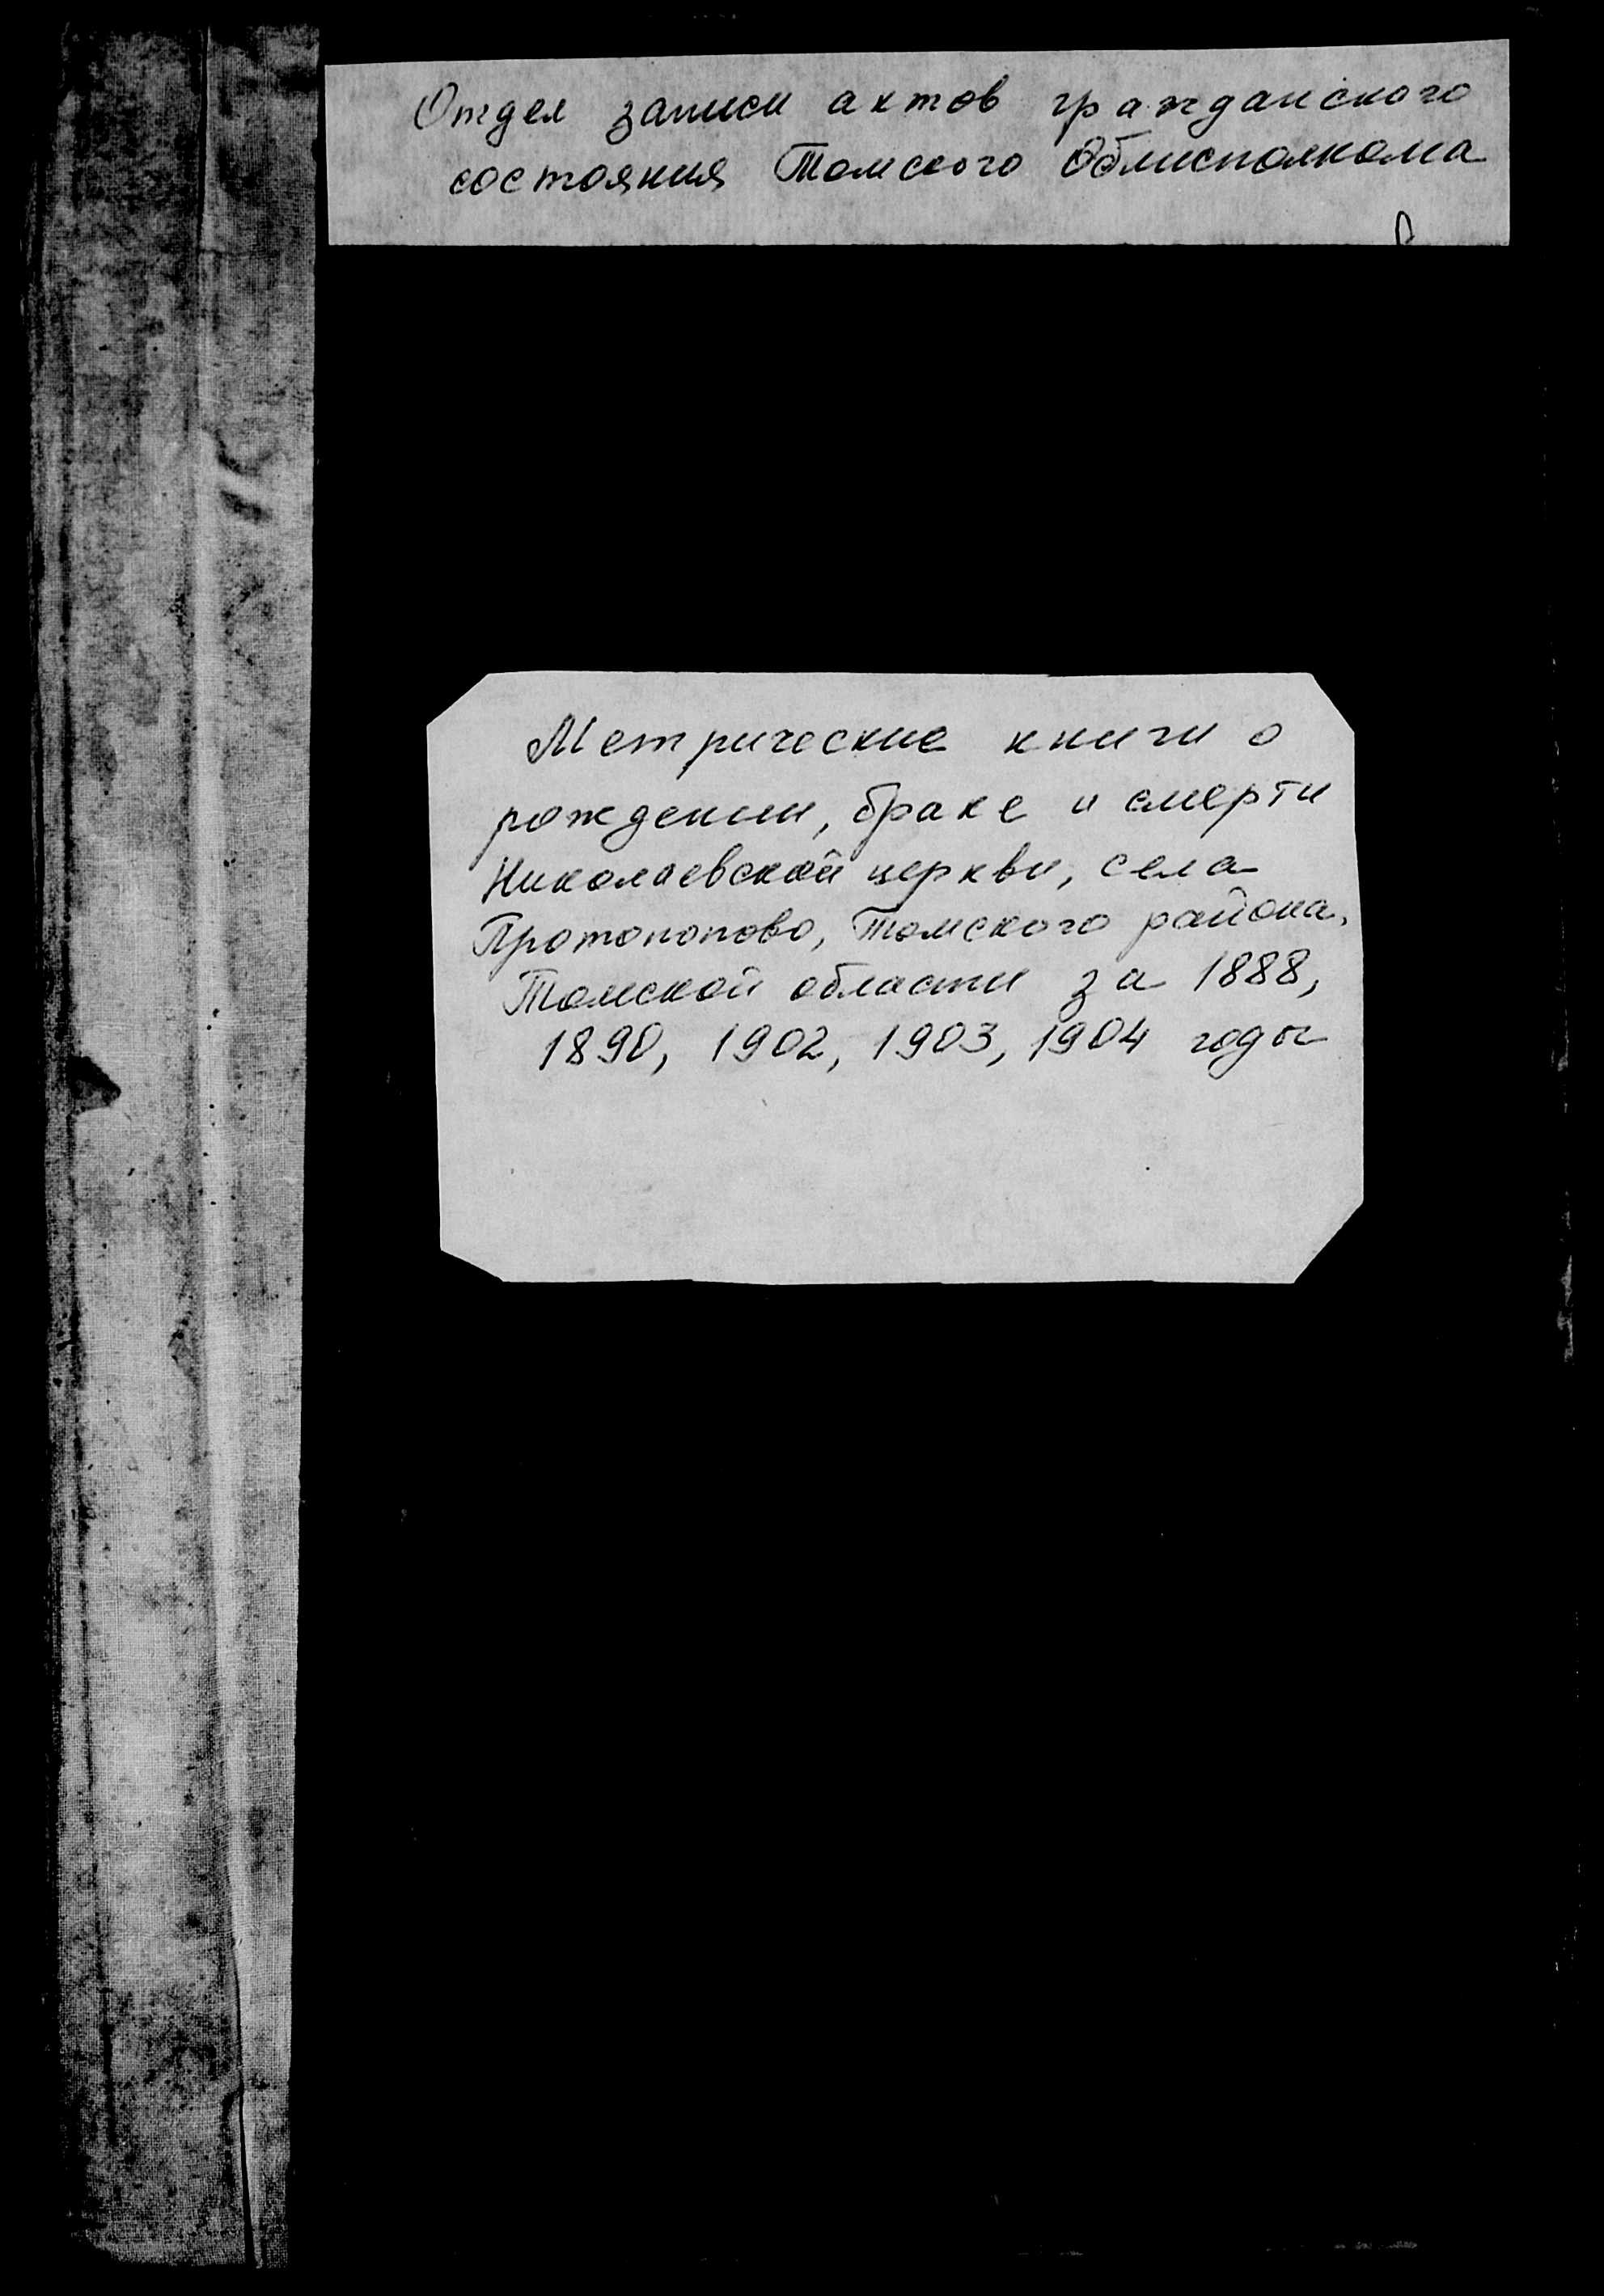 Отдел записи актов гражданского
состояния Томского Облисполкома
Метрические книги о
рождении, браке и смерти
Николаевской церкви, села
Протопопово, Томского района,
Томской области за 1888,
1890, 1902, 1903, 1904 годы